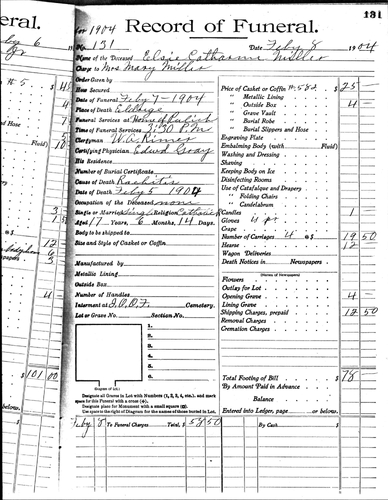 131
eral.
Record of Funeral.
For 1904
No. 131
Date Feby 8 1904
Name of the Deceased Elsie Catharine Miller
Charge to Mrs Mary Miller
Order Given by
How Secured
Date of Funeral Feby 7 - 1904
Place of Death
Funeral Services at
Time of Funeral Services 3:30 P.M
Clergyman W.A.
Certifying Physician Edwd Gray
His Residence
Number of Burial Certificate
Cause of Death Rachitis
Date of Death Feby 5 1904
Occupation of the Deceased none
Single or Married Single Religion
Aged 17 Years 6 Months 14 Days.
Body to be shipped to
Size and Style of Casket or Coffin.
Manufactured by
Metallic Lining
Outside Box
Number of Handles
Interment at I.O.O.F. Cemetery.
Lot or Grave No. Section No.
1.
2.
3.
4.
5.
6.
(Diagram of Lot.)
Designate all Graves in Lot with Numbers (1, 2, 3, 4, etc.), and mark
space for this Funeral with a cross (+).
Designate place for Monument with a small square (□).
Use spots to the right of Diagram for the names of those buried in Lot.
Price of Casket or Coffin # 582 $ 25 —
" Metallic Lining
" Outside Box 4 —
" Grave Vault
" Burial Robe
" Burial Slippers and Hose
Engraving Plate
Embalming Body (with Fluid)
Washing and Dressing
Shaving
Keeping Body on Ice
Disinfecting Rooms
Use of Catafalque and Drapery
" Folding Chairs
" Candelabrum
Candles 1
Gloves 4 pr
Crape
Number of Carriages 4 @ $ 19 50
Hearse 12
Wagon Deliveries
Death Notices in Newspapers
(Names of Newspapers)
Flowers
Outlay for Lot
Opening Grave 4
Lining Grave
Shipping Charges, prepaid 12 50
Removal Charges
Cremation Charges
Total Footing of Bill $ 78
By Amount Paid in Advance
Balance
Entered into Ledger, page or below.
Feby 8 To Funeral Charges Total, $ 58 50 By Cash $
101 00
or below.